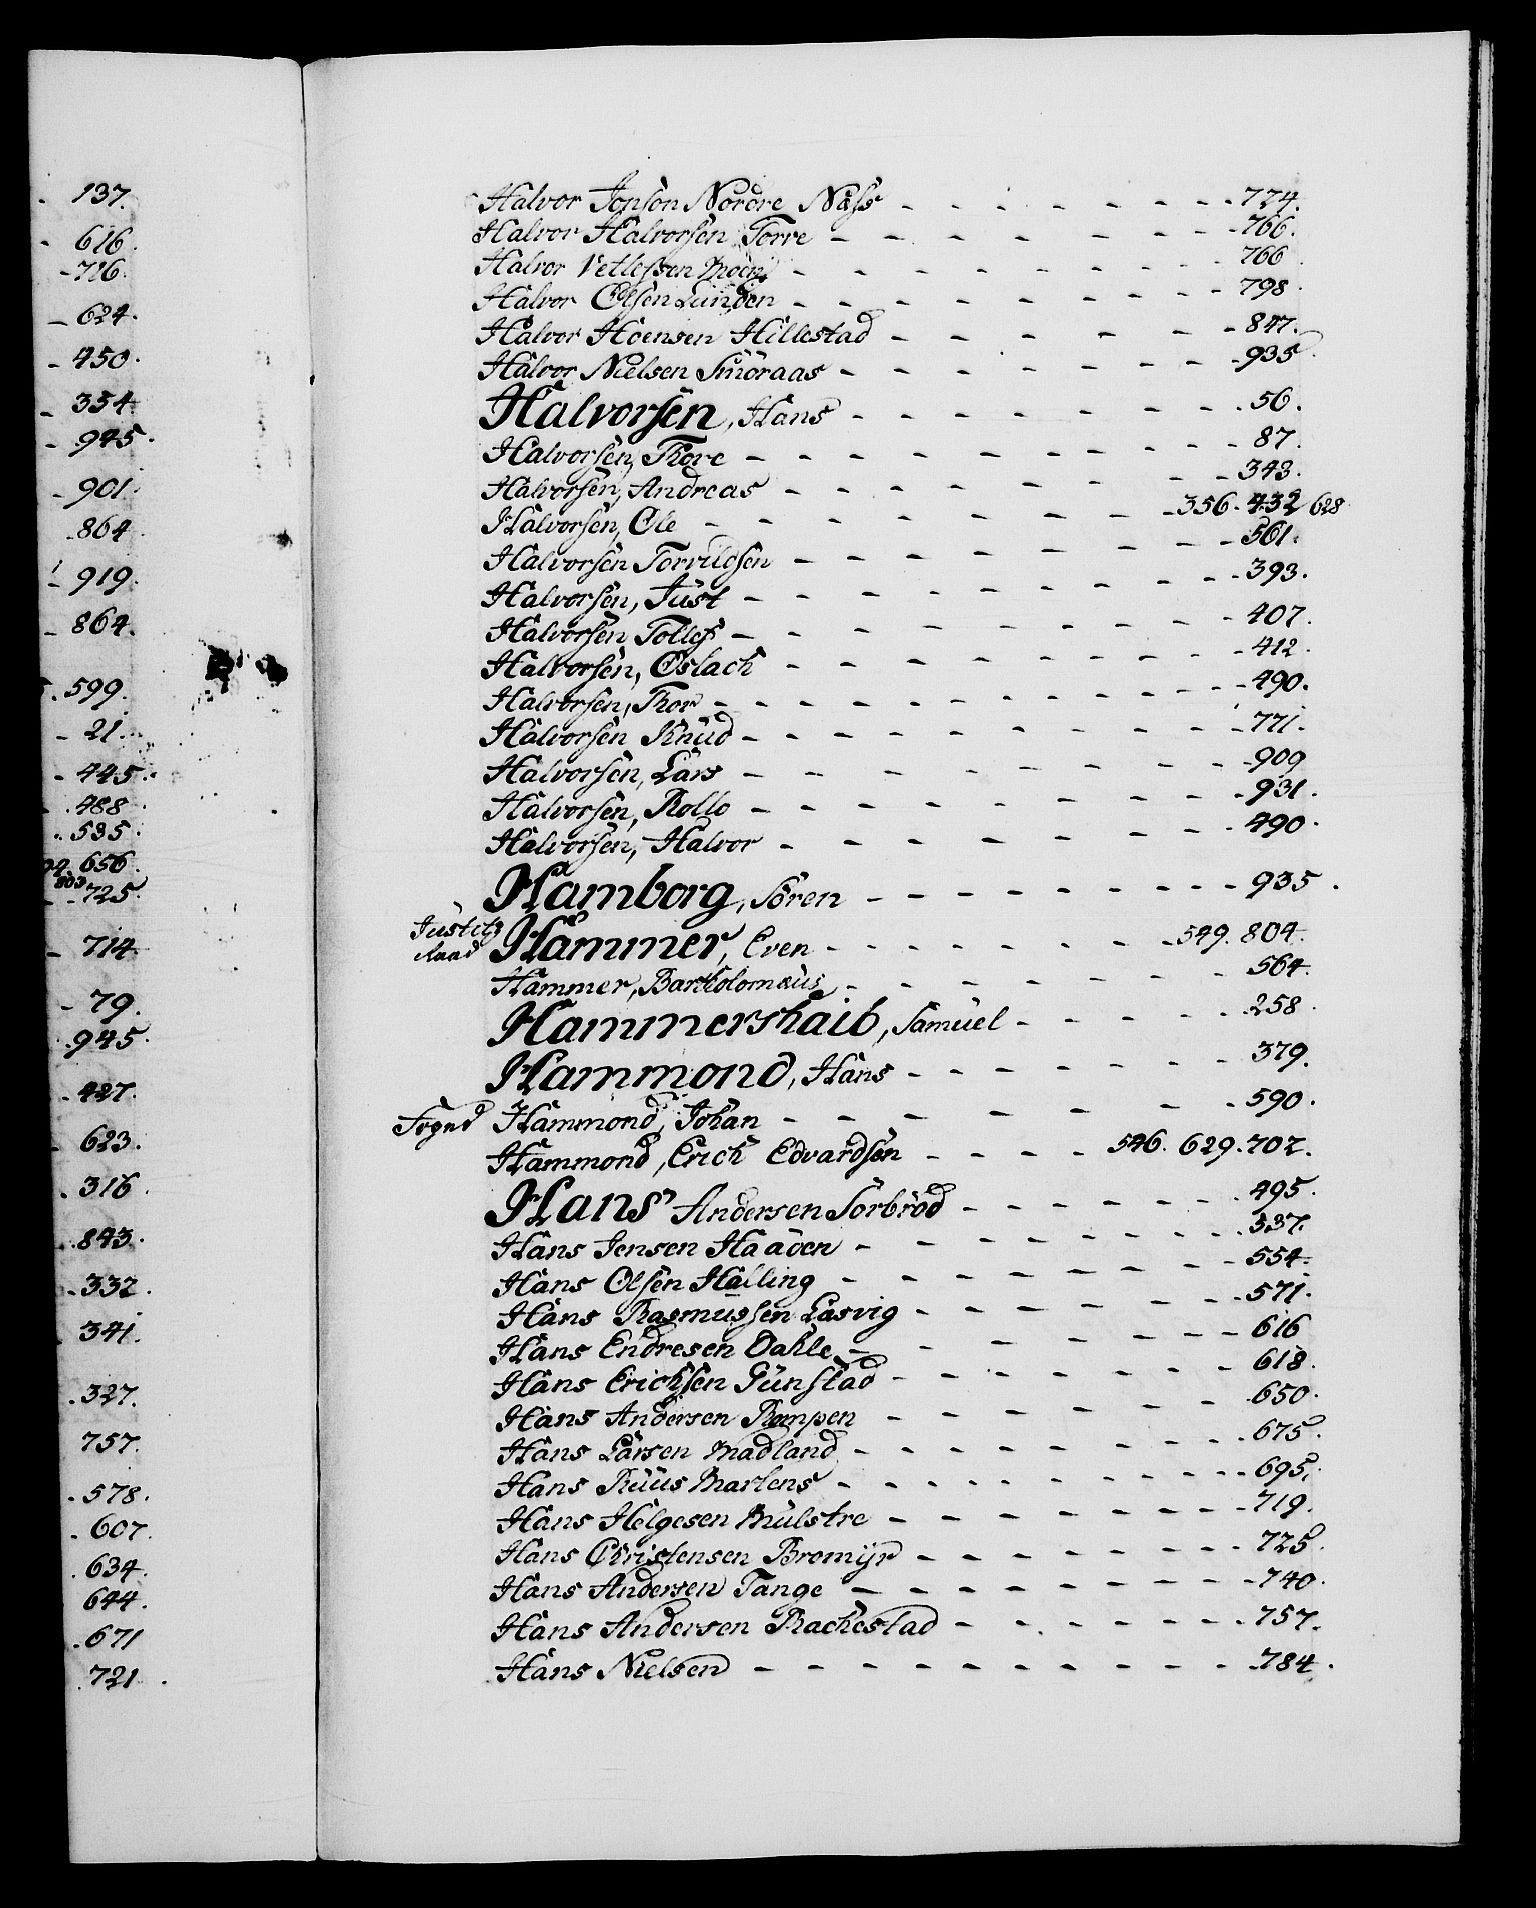 137.
616.
716.
624.
450.
354.
945.
901.
864.
919.
864.
599.
21.
445.
488.
535.
656.
803
725.
714.
79.
945.
427.
623.
316.
843.
332.
341.
327.
757.
578.
607.
634.
644.
671
721.
Halvor Jonson Nordre Næss - - - 774.
Halvor Halvorsen Torre - - - 766.
Halvor Vetlessen Moen - - - 766
Halvor Olsen Lunden - - - 798.
Halvor Hoensen Hillestad - - - 847.
Halvor Nielsen Smöraas - - - 935.
Halvorsen, Hans - - - 56.
Halvorsen, Thore - - - 87.
Halvorsen, Andreas - - - 343.
Halvorsen, Ole - - - 356. 432 628
Halvorsen Torvildsen - - - 561.
Halvorsen, Just - - - 393.
Halvorsen Tollef - - - 407.
Halvorsen, Oslach - - - 412.
Halvorsen, Thor - - - 490.
Halvorsen Knud - - - 771.
Halvorsen, Lars - - - 909
Halvorsen, Rollo - - - 931.
Halvorsen, Halvor - - - 490.
Hamborg, Sören - - - 935.
Justitz Raad Hammer, Even - - - 549. 804.
Hammer, Bartholomæus - - - 564.
Hammershaib, Samuel - - - 258.
Hammond, Hans - - - 379.
Fogud Hammond, Johan - - - 590.
Hammond, Erich Edvardsen - - - 546. 629. 702.
Hans Andersen Sorbröd - - - 495.
Hans Jensen Haaden - - - 537.
Hans Olsen Halling - - - 554.
Hans Rasmussen Lasvig - - - 571.
Hans Endresen Dahle - - - 616
Hans Erichsen Gunstad - - - 618.
Hans Andersen Rempen - - - 650.
Hans Larsen Madland - - - 675.
Hans Ruus Martens - - - 695.
Hans Helgesen Mulstre - - - 719.
Hans Christensen Bromyr - - - 725.
Hans Andersen Tange - - - 740.
Hans Andersen Rachestad - - - 757.
Hans Nielsen - - - 784.